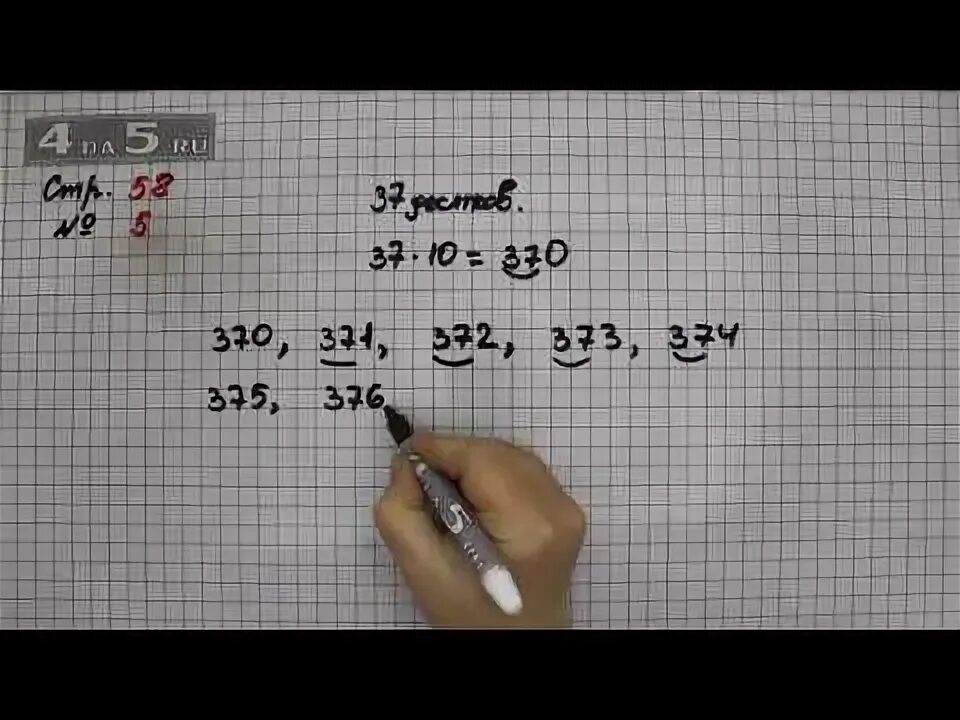 4 на 5 RU
Стр. 58
№ 5
37 десятков.
37·10=370
370, 371, 372, 373, 374
375, 376